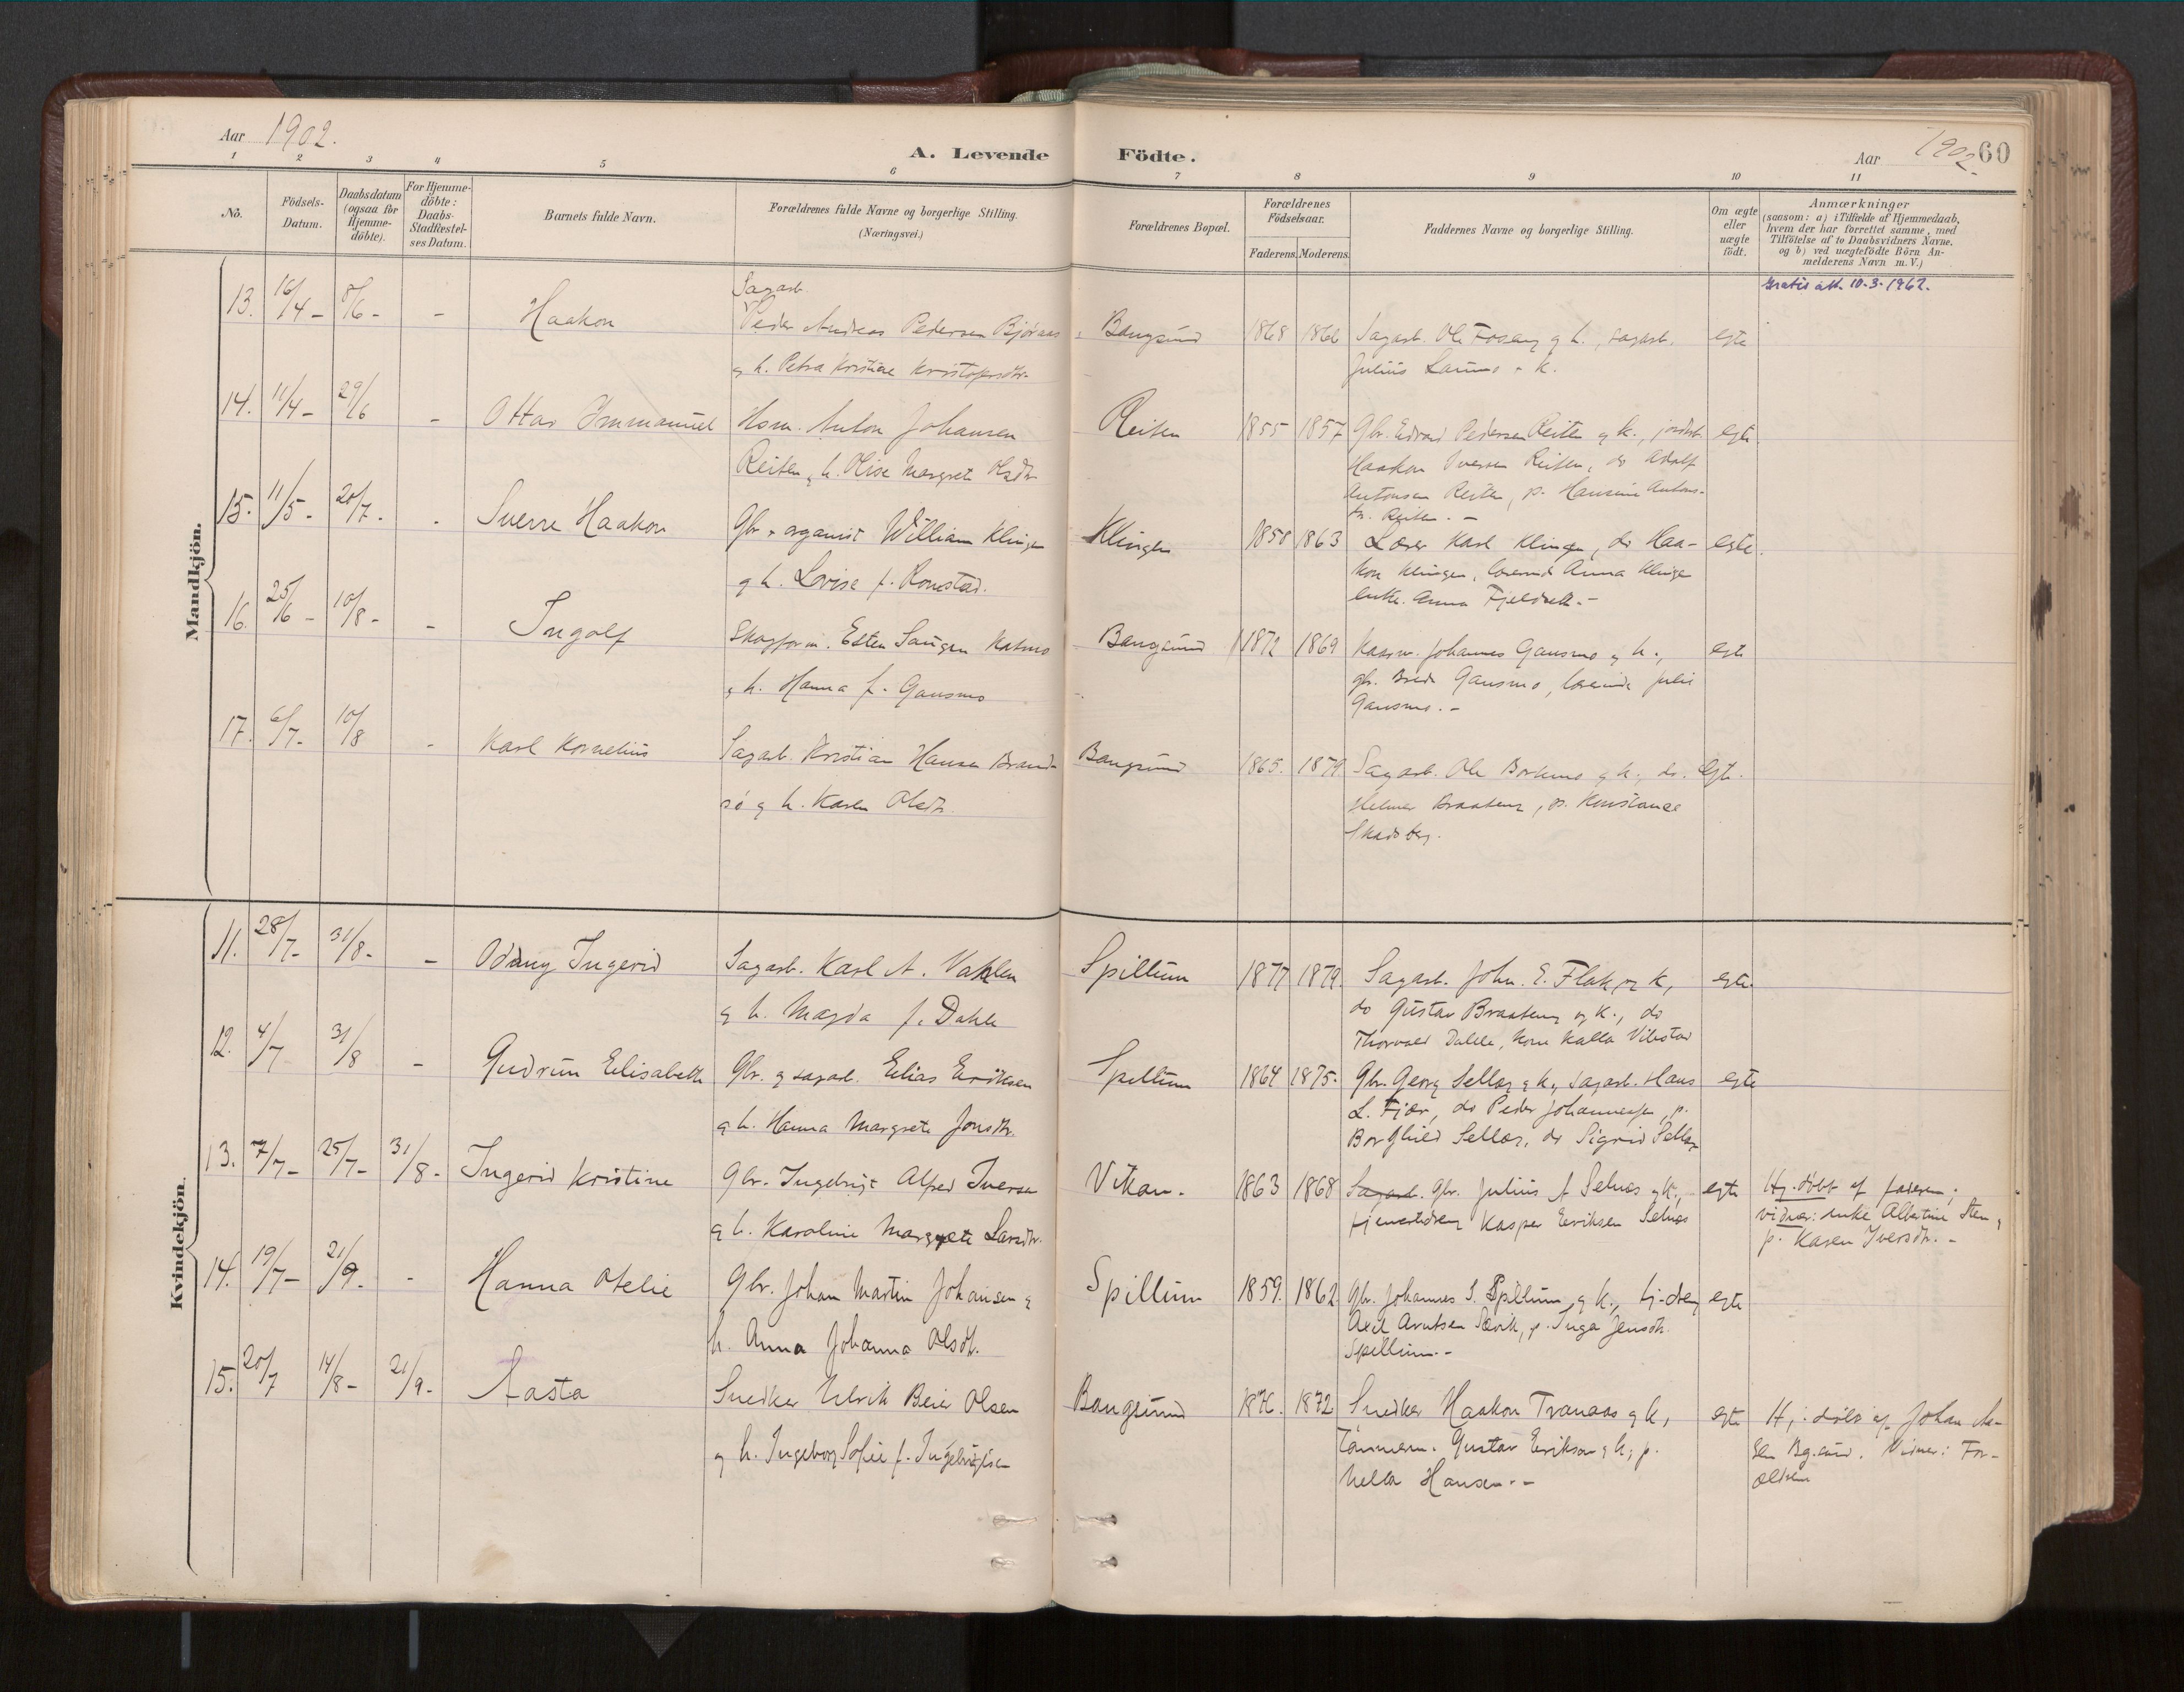 Aar 1902.
A. Levende Födte.
Aar 1902. 60
1 2 3 4 5 6 7 8 9 10 11
No.
Födsels-Datum.
Daabsdatum (ogsaa for Hjemme-döbte).
For Hjemme-döbte: Daabs-Stadfæstel-ses Datum.
Barnets fulde Navn.
Forældrenes fulde Navne og borgerlige Stilling.
(Næringsvei.)
Forældrenes Bopæl.
Forældrenes Födselsaar.
Faderens. Moderens.
Faddernes Navne og borgerlige Stilling.
Om ægte eller uægte födt.
Anmærkninger
(saasom: a) i Tilfælde af Hjemmedaab, hvem der har forrettet samme, med Tilföielse af to Daabsvidners Navne. og b) ved uægtefödte Börn An-melderens Navn m. V.)
Mandkjön.
Gratis att. 10-3-1962.
13. 16/4 - 8/6 - - Haakon
Sagarb.
Peder Andreas Pedersen Bjøraas
g h. Petra Kristine
Bangsund 1868 1866
Sagarb. Ole Foseng g h., sagarb.
Julius - k.
egte
14. 11/4 - 29/6 - Ottar Immanuel
Hsm. Anton Johansen
Reiten g h. Olise Margrete Olsdtr.
Reiten 1855 1857
Gbr. Edvard Pedersen Reiten g k.,
Haakon Iversen Reiten, do Adolf
Antonsen Reiten, p. Hansine Antons-
tr. Reiten. -
egte
15. 11/5 - 20/7 - - Sverre Haakon
Gbr. organist William Klingen
g h. Lovise f. Romstad.
Klingen 1850 1863
Lærer Karl Klingen, do Haa-
kon Klingen, Anna Klingen
enke. Anna -
egte.
16. 25/6 - 10/8 - - Ingolf
Skogform. Esten Saugen Katmo
g h. Hanna f. Gausmo
Bangsund 1872 1869
Johannes Gausmo g h.,
gbr. Gausmo, Julie
Gausmo. -
egte
17. 6/7 - 10/8 - Karl Kornelius
Sagarb. Kristian Hansen Brand-
sö g h. Karen Olsdtr.
Bangsund 1865. 1879
Sagarb. Ole g k., do.
Helmer Braaten, p.
Skadsberg.
Egte.
Kvindekjön.
11. 28/7 - 31/8 - - Oddny Ingerid
Sagarb. Karl A. Vahlen
g h. Magda f. Dahle
Spillum 1877 1879.
Sagarb. John. E. Flak og k,
do Gustav Braaten og k., do
Thorvald Dahle, kone Kalla
egte.
12. 4/7 31/8 - Gudrun Elisabeth
Gbr. g sagarb. Elias Eriksen
g h. Hanna Margrete Jonsdtr.
Spillum 1864 1875.
Gbr. Georg Sellæg g k., sagarb. Hans
L. Fjær, do Peder Johannesen, p.
Borghild Sellæg, do Sigrid Sellæg
egte
13. 7/7 - 25/7 - 31/8 - Ingerid Kristine
Gbr. Ingebrigt Alfred Iversen
g h. Karoline Margrete Larsdtr.
Vikan. 1863 1868
Sagarb. Gbr. Julius A Selnes g k.,
tjenestedreng Kasper Eriksen Selnes
egte
Hj. döbt af faderen;
vidner: enke Albertine Sten g
p. Karen Iversdtr. -
14. 19/7 - 21/9. - Hanna Otelie
Gbr. Johan Martin Johansen g
h. Anna Johanna Olsdt.
Spillum 1859. 1862
Gbr. Johannes S. Spillum g k., tj-dreng
Axel Arntsen Sævik, p. Inga Jensdtr.
Spillum. -
egte
15. 20/7 14/8 - 21/9 - Aasta
Snedker Ulrik Beier Olsen
g h. Ingeborg Sofie f. Ingebrigtsen
Bangsund 1876. 1872
Snedker Haakon Tranaas g k,
Tömmerm. Gustav Erikson g k; p.
Hella Hansen. -
egte
Hj. döbt af Johan
sen Bg.sund. Vidner: For-
ældrene